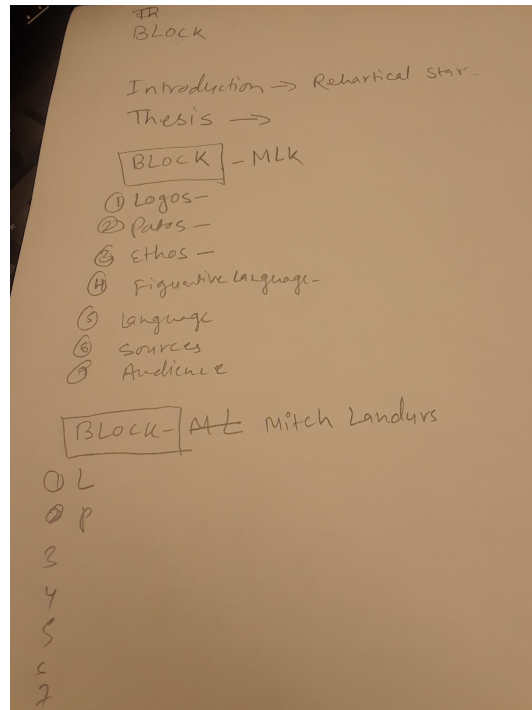 BLOCK
Introduction → Rehartical star-
Thesis →
BLOCK - MLK
① Logos -
② Patos -
③ Ethos -
④ Figuative Language-
⑤ Language
⑥ Sources
⑦ Audience
BLOCK- ML Mitch Landurs
① L
② P
3
4
5
6
7